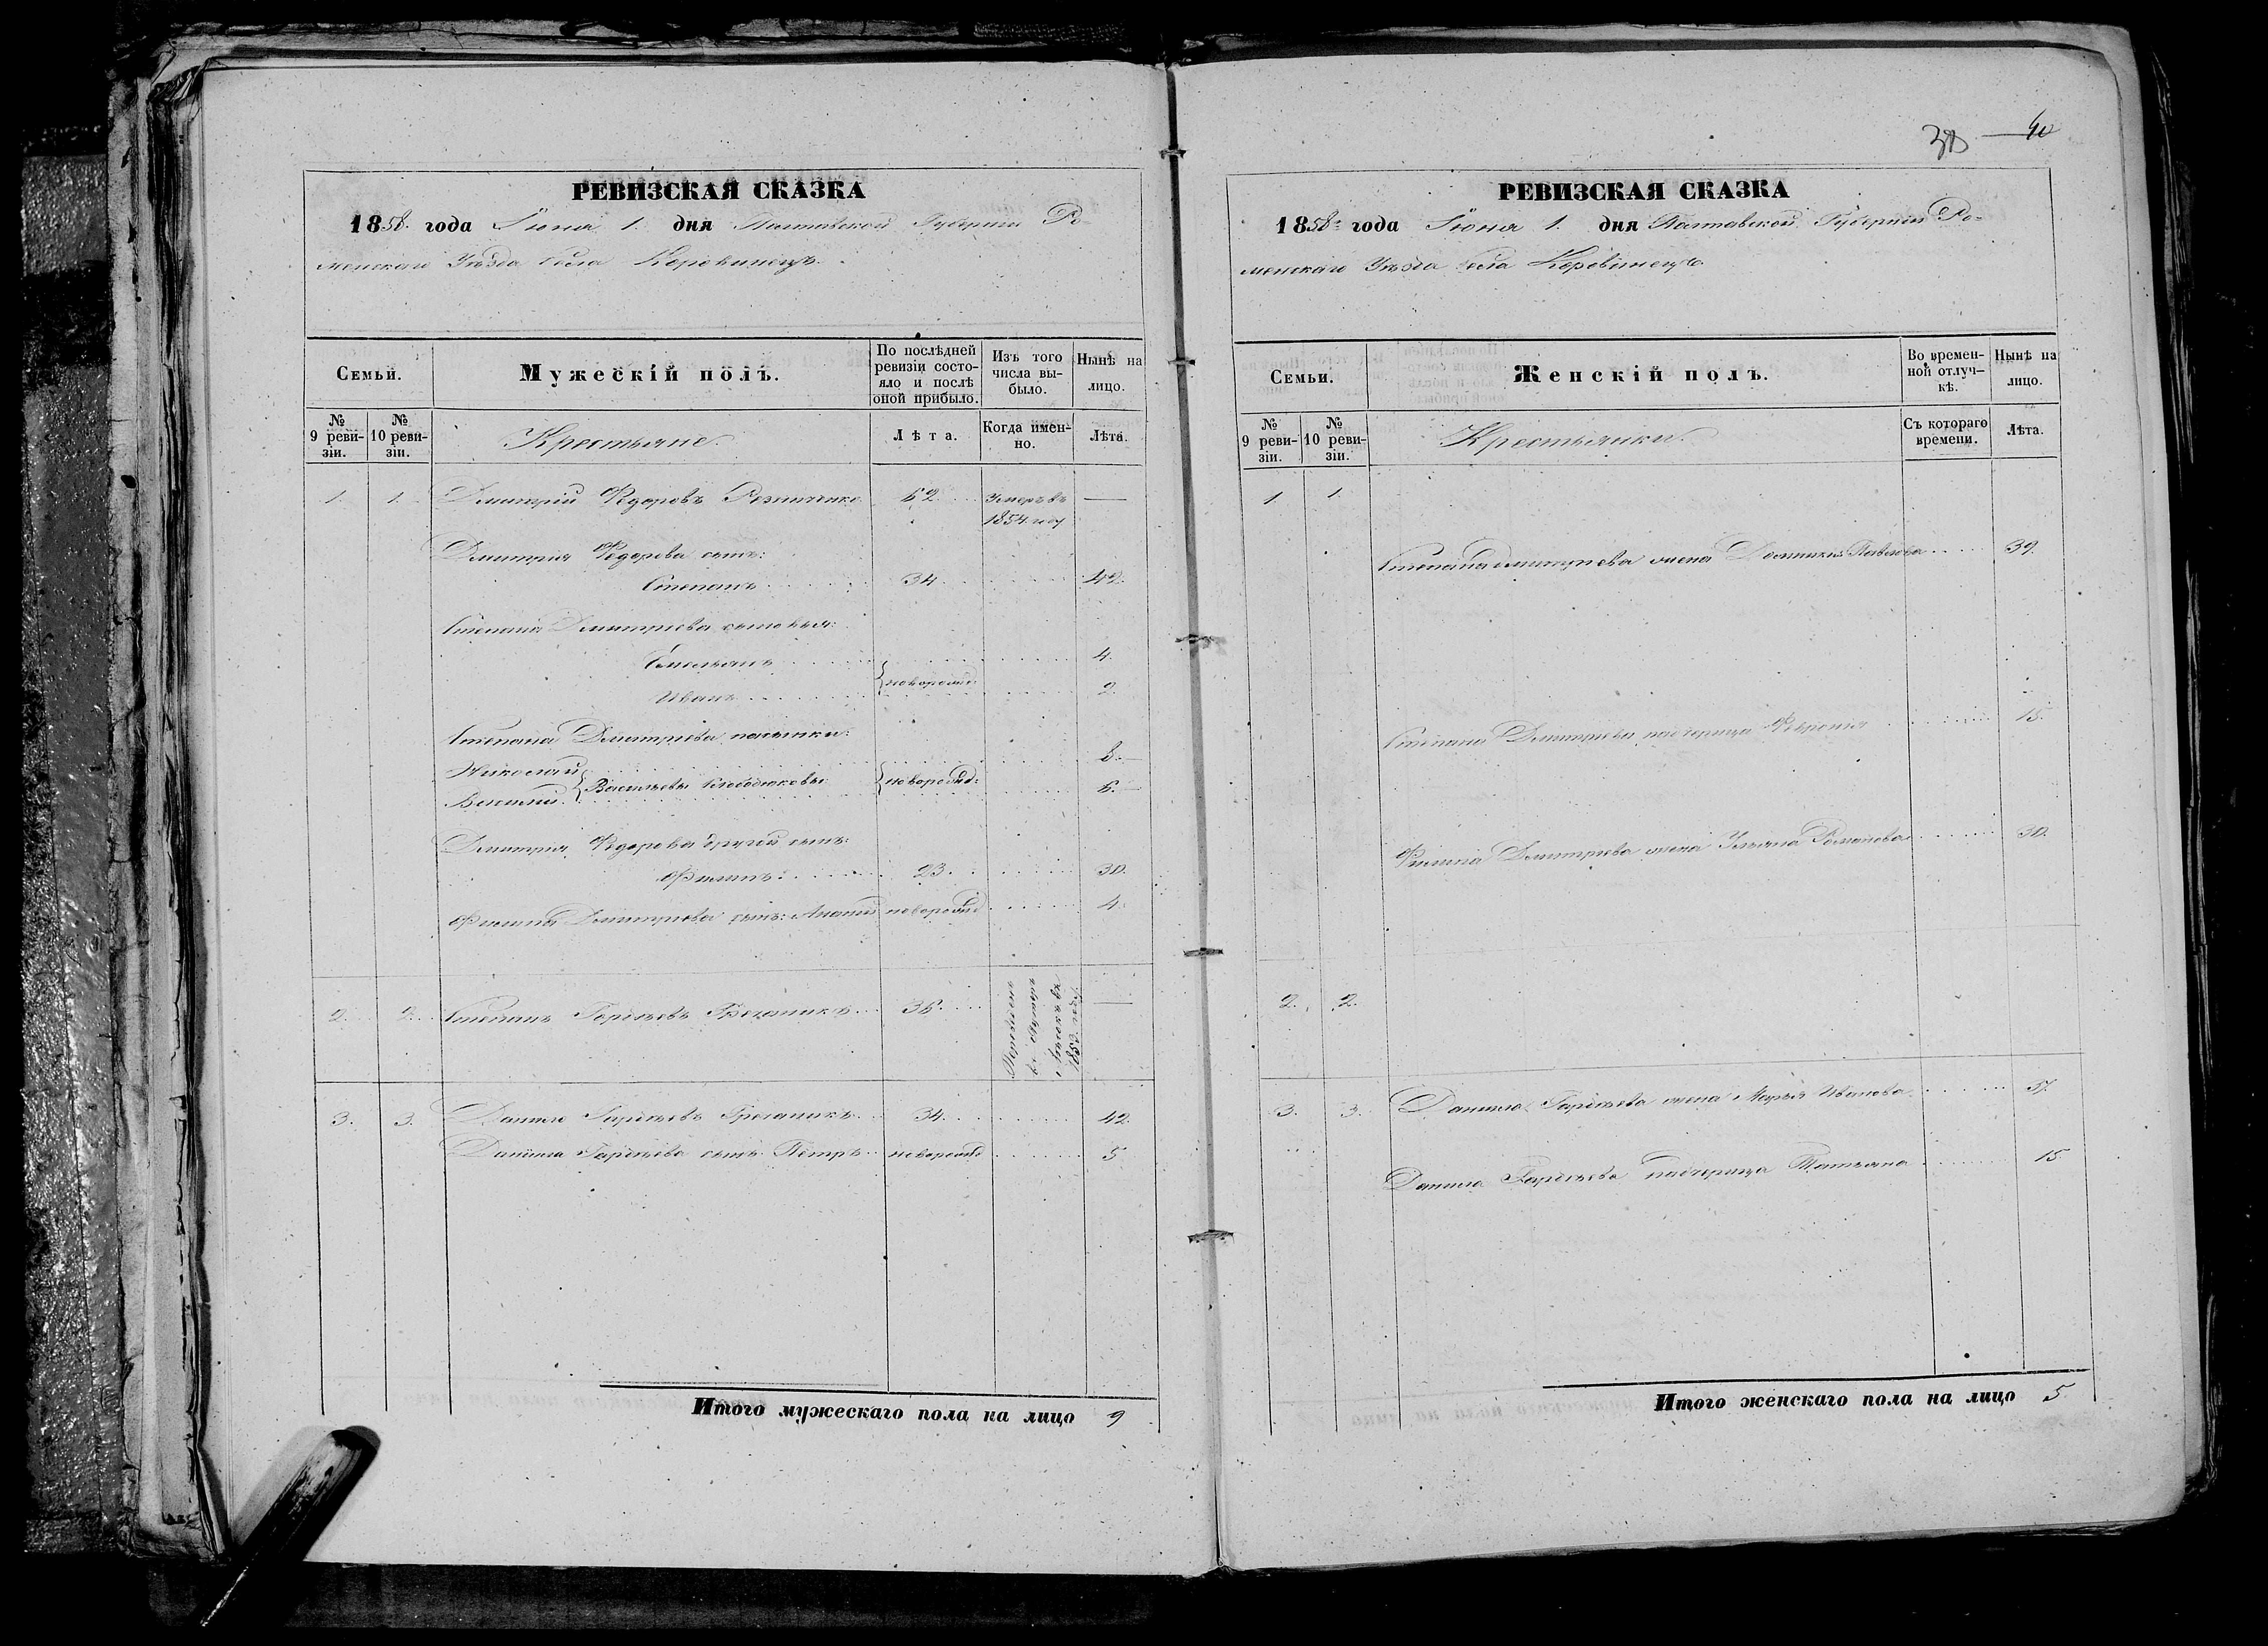 РЕВИЗСКАЯ СКАЗКА
1858. года Іюня 1. дня Полтавской Губерніи Ро-
менскаго Уѣзда села Коровинецъ.
Семьи.
Мужескій полъ.
По послѣдней ревизіи состо-яло и послѣ оной прибыло.
Изъ того числа вы-было.
Нынѣ на лицо.
№ 9 реви-зіи.
№ 10 реви-зіи.
Крестьяне.
Лѣта.
Когда имен-но.
Лѣта.
1. 1. Дмитрій Федоровъ 62 Умеръ въ —
1854 году
Дмитрія Федорова сынъ:
Степанъ 34 42.
Степана Дмитріева сыновья:
Емельянъ 4.
новорожд:
Иванъ 2.
Степана Дмитріева пасынки:
Николай 8.
Васильевы новорожд:
Василій 6.
Дмитрія Федорова другой сынъ:
Филипъ 23. 30.
Филипа Дмитріева сынъ: Ананій новорожд 4.
2. 2. Степанъ Гордѣевъ Гречаникъ 36. Переведенъ въ 185 году —
3. 3. Данило Гордѣевъ Гречаникъ 34. 42.
Данила Гордѣева сынъ Петръ новорожд 5
Итого мужескаго пола на лицо 9
40
РЕВИЗСКАЯ СКАЗКА
1858 года Іюня 1. дня Полтавской Губерніи Ро-
менскаго Уѣзда села Коровинецъ
Семьи.
Женскій полъ.
Во времен-ной отлуч-кѣ.
Нынѣ на лицо.
№ 9 реви-зіи.
№ 10 реви-зіи.
Крестьянки.
Съ котораго времени.
Лѣта.
1. 1.
Степана Дмитріева жена Домникія Павлова 39.
Степана Дмитріева падчерица Февронія 15.
Филипа Дмитріева жена Ульяна Романова 30.
2. 2.
3. 3. Данила Гордѣева жена Марья Иванова 37.
Данила Гордѣева падчерица Татьяна 15
Итого женскаго пола на лицо 5